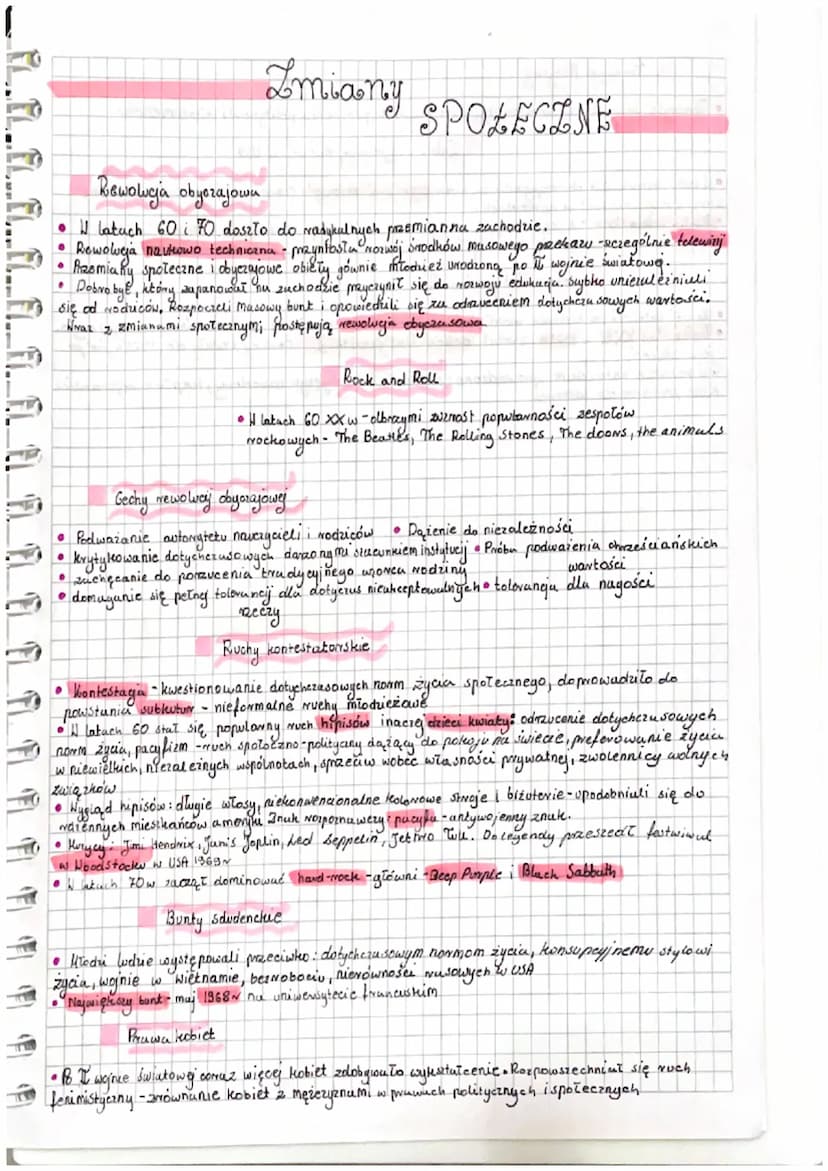 Zmiany
SPOŁECZNE
Rewolucja obyczajowa
• W latach 60 i 70 doszło do radykalnych przemian na zachodzie.
• Rewolucja naukowo techniczna - przyniosła rozwój środków masowego przekazu - szczególnie telewizji
• Przemiany społeczne i obyczajowe objęły głównie młodzież urodzoną po II wojnie światowej.
• Dobrobyt, który zapanował na zachodzie przyczynił się do rozwoju edukacja. Szybko uniezależnili
się od rodziców. Rozpoczeli masowy bunt i opowiedzili się za odrzuceniem dotychczasowych wartości.
Wraz z zmianami społecznymi postępują rewolucja obyczasowa
Rock and Roll
• W latach 60 XX w - olbrzymi wzrost popularności zespołów
rockowych - The Beatles, The Rolling Stones, The doors, the animals
Cechy rewolucji obyczajowej
• Podważanie autorytetu nauczycieli i rodziców • Dążenie do niezależności
• krytykowanie dotychczasowych darzonymi szacunkiem instytucji • Próba podważenia chrześciańskich
wartości
• zachęcanie do porzucenia tradycyjnego wzorca rodziny
• domaganie się pełnej tolerancji dla dotyczas nieakceptowalnych • tolerancja dla nagości
rzeczy
Ruchy kontestatorskie
• Kontestacja - kwestionowanie dotychczasowych norm życia społecznego, doprowadziło do
powstania subkultur - nieformalne ruchy młodzieżowe
• W latach 60 stał się popularny ruch hipisów inaczej dzieci kwiaty: odrzucenie dotychczasowych
norm życia, pacyfizm - ruch społeczno-polityczny dążący do pokoju na świecie, preferowanie życia
w niewielkich, niezależnych wspólnotach, sprzeciw wobec własności prywatnej, zwolennicy wolnych
związków
• Wygląd hipisów: długie włosy, niekonwencjonalne kolorowe stroje i biżuterie - upodobniali się do
rdzennych mieszkańców ameryki Znak rozpoznawczy: pacyfa - antywojenny znak.
• Muzycy: Jimi Hendrix, Janis Joplin, Led Zeppelin, Jethro Tull. Do legendy przeszedł festwiwal
w Woodstocku w USA 1969r
• W latach 70 w zaczął dominować hard-rock - główni - Deep Purple i Black Sabbath
Bunty sdudenckie
• Młodzi ludzie występowali przeciwko: dotychczasowym normom życia, konsupcyjnemu stylowi
życia, wojnie w Wietnamie, bezrobociu, nierówności rasowych w USA
• Największy bunt - maj 1968r na uniwersytecie francuskim
Prawa kobiet
• Po II wojnie światowej coraz więcej kobiet zdobywało wykształcenie. Rozpowszechniał się ruch
feministyczny - zrównanie kobiet z mężczyznami w prawach politycznych i społecznych